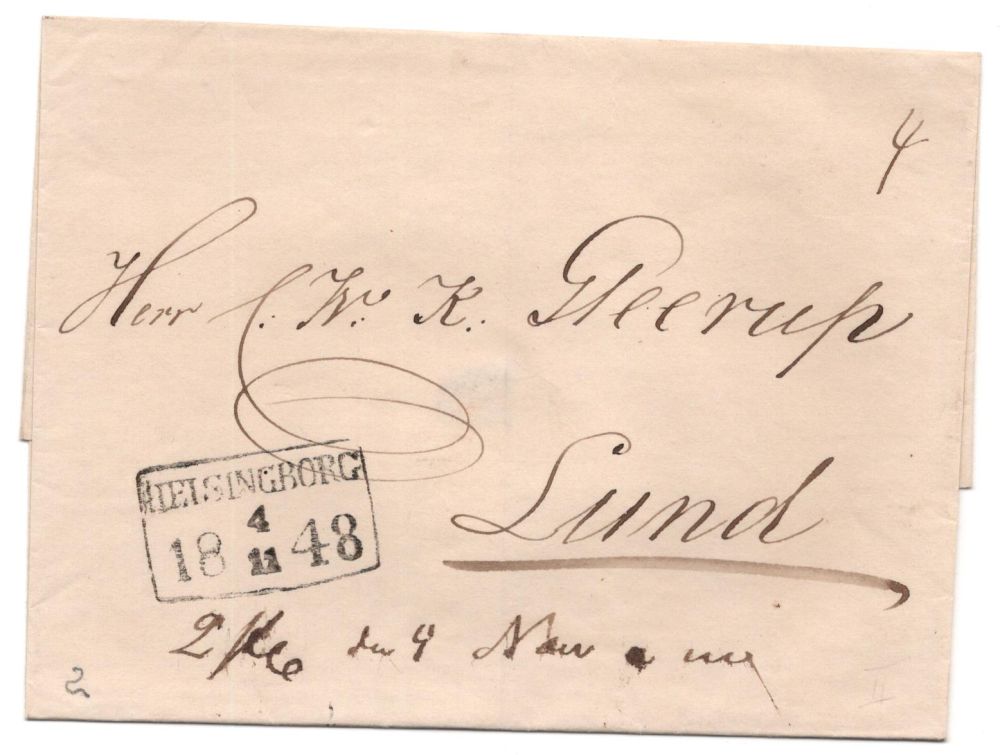 4
Herr C. W. K. Gleerup
Lund
HELSINGBORG
18 4/11 48
2 den 4 Nov
2